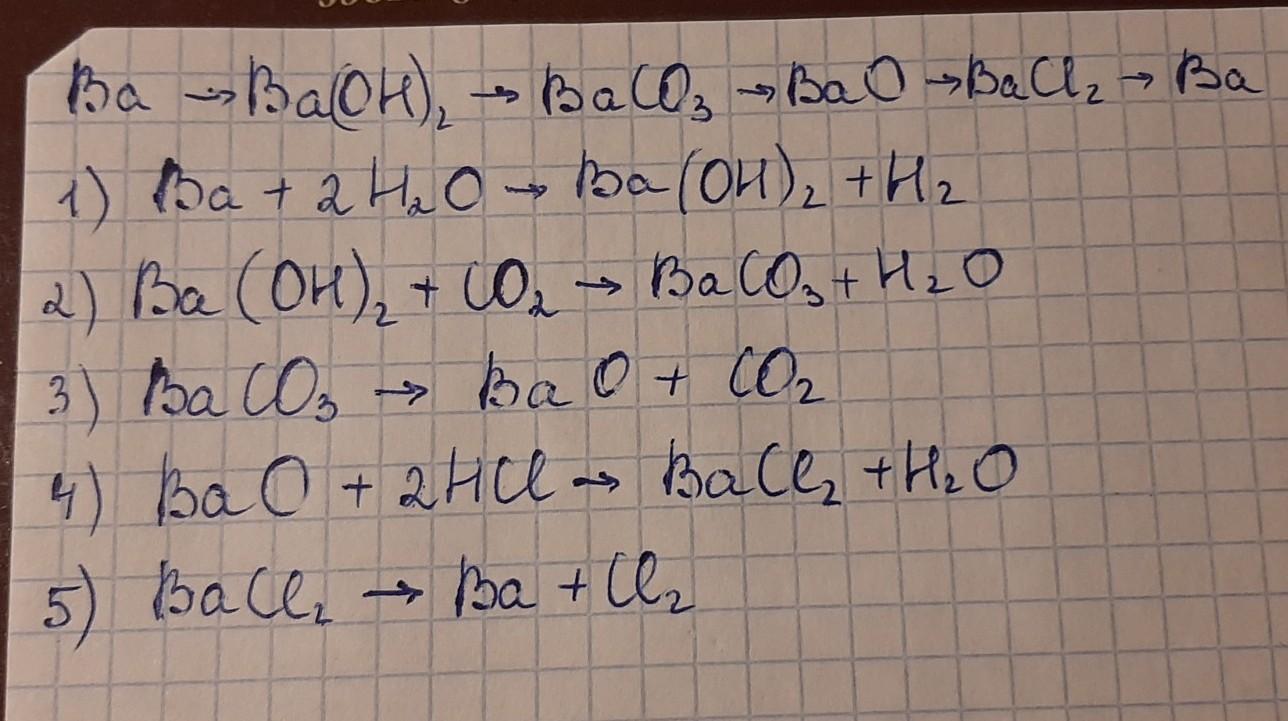 Ba → Ba(OH)₂ → BaCO₃ → BaO → BaCl₂ → Ba
1) Ba + 2H₂O → Ba(OH)₂ + H₂
2) Ba(OH)₂ + CO₂ → BaCO₃ + H₂O
3) BaCO₃ → BaO + CO₂
4) BaO + 2HCl → BaCl₂ + H₂O
5) BaCl₂ → Ba + Cl₂